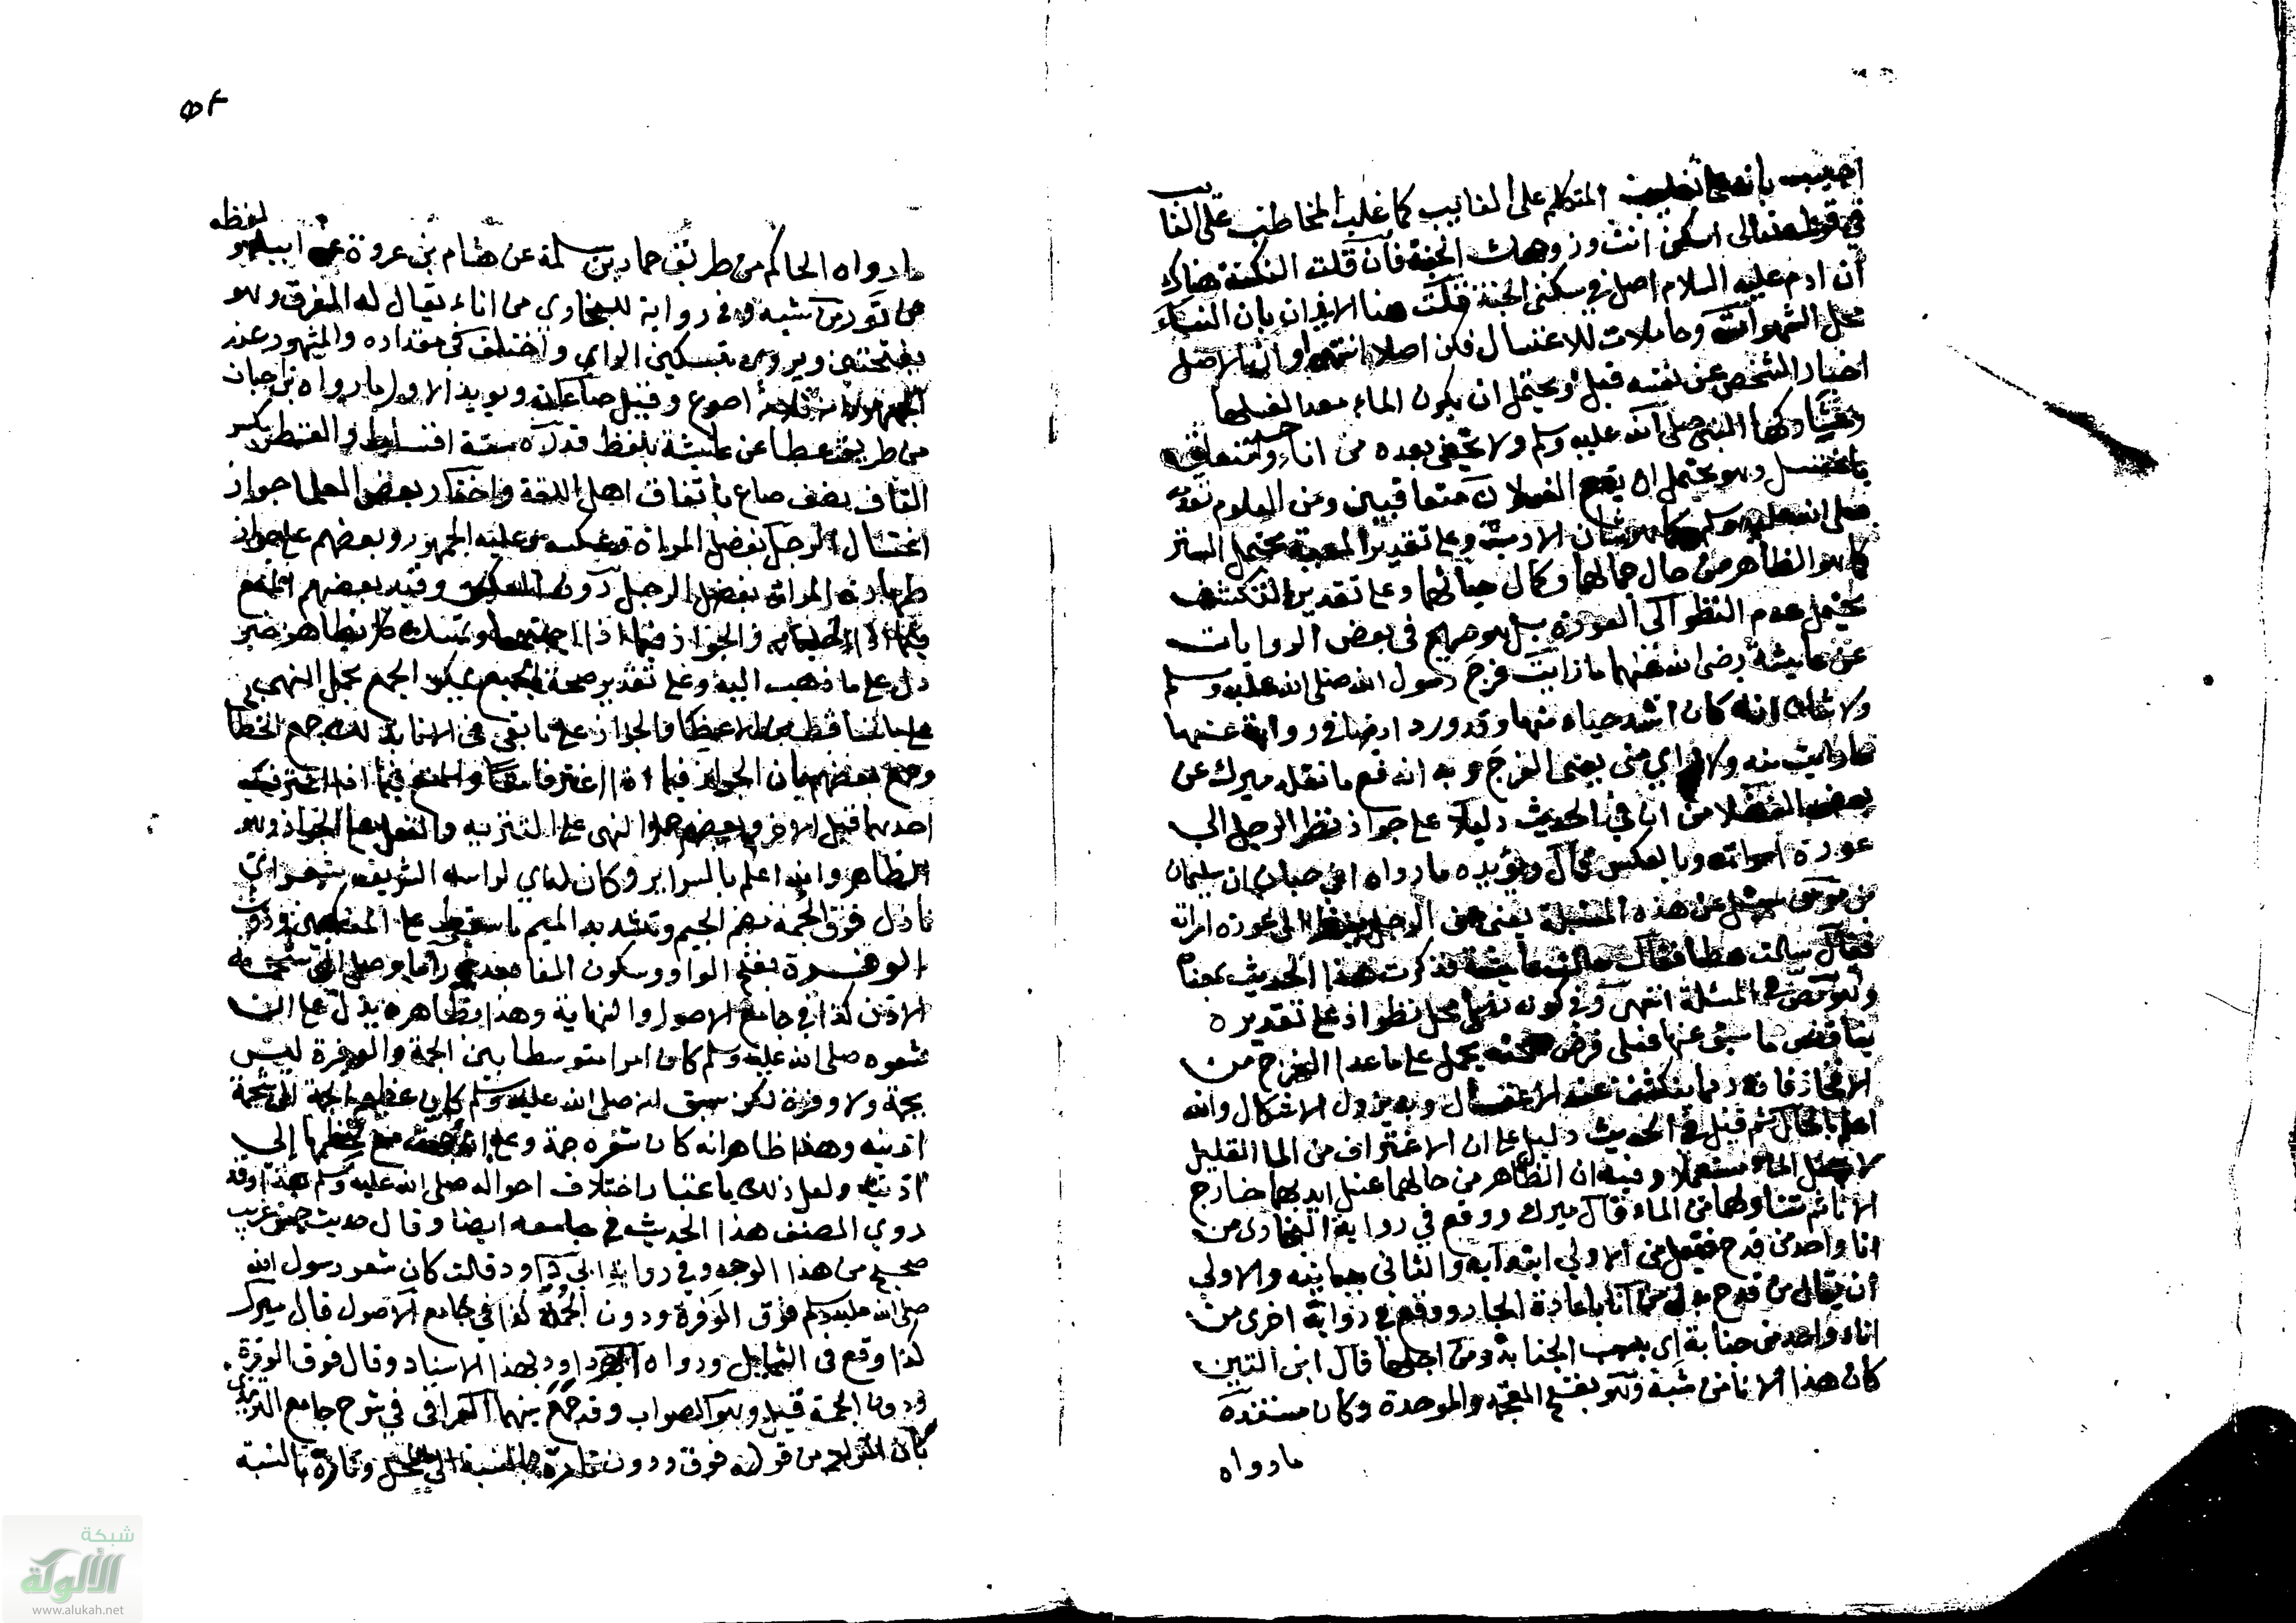 اجيب بانه على تغليب المتكلم على الغايب كما غلب المخاطب على الغايب
في قوله تعالى اسكن انت وزوجك الجنة فان قلت النكتة هناك
ان ادم عليه السلام اصل في سكنى الجنة قلت هنا الايذان بان النساء
محل الشهوات وحاملات للاغتسال فكن اصلا انتهى او ان الاصل
اخبار الشخص عن نفسه قبل ويحتمل ان يكون الماء معدا لغسلها
وشاركها النبي صلى الله عليه وسلم ولا يخفى بعده من اناء واحد متعلق
باغتسل وهو يحتمل ان يقع الغسلان متعاقبين ومن المعلوم تقدمه
صلى الله عليه وسلم كما هو شان الادب وعلى تقدير المعية يحتمل الستر
كما هو الظاهر من حال جمالها وكمال حيائهما وعلى تقدير التكشف
يحتمل عدم النظر الى العورة بل هو صريح في بعض الروايات
عن عايشة رضي الله عنها ما رايت فرج رسول الله صلى الله عليه وسلم
ولا شك انه كان اشد حياء منها وقد ورد ايضا في رواية عنها
ما رايت منه ولا راي مني يعني الفرج وبه اندفع ما نقله ميرك عن
بعض الفضلا من ان في الحديث دليلا على جواز نظر الرجل الى
عورة امراته وبالعكس قال ويؤيده ما رواه ابن حبان ان سليمان
بن موسى سئل عن هذه المسئلة يعني عن الرجل ينظر الى عورة امراته
فقال سالت عطا فقال سالت عايشة فذكرت هذا الحديث بمعناه
وهو نص في المسئلة انتهى وفي كونه نصا محل نظر اذ على تقديره
يناقض ما سبق عنها فعلى فرض صحته يحمل على ما عدا الفرج من
الافخاذ فانه ربما ينكشف عند الاغتسال وبه يزول الاشكال والله
اعلم بالحال ثم قيل في الحديث دليل على ان الاغتراف من الما القليل
لا يجعل الماء مستعملا وفيه ان الظاهر من حالهما غسل ايديهما خارج
الانا ثم تناولهما من الماء قال ميرك ووقع في رواية البخاري من
انا واحد من قدح فقيل من الاولى ابتدائية والثاني بيانية والاولى
ان يقال من قدح بدل من انا باعادة الجار ووقع في رواية اخرى من
اناء واحد من جنابة اي بسبب الجنابة ومن اجلها قال ابن التين
كان هذا الانا من شبة وهو بفتح المعجمة والموحدة وكان مستنده
ما رواه
٥٢
ما رواه الحاكم من طريق حماد بن سلمة عن هشام بن عروة عن ابيه ولفظه
من تور من شبه وفي رواية للبخاري من اناء يقال له الفرق وهو
بفتحتين ويروى بتسكين الراي واختلف في مقداره والمشهور عند
الجمهور انه ثلاثة اصوع وقيل صاعان ويويد الاول ما رواه بن حبان
من طريق عطا عن عايشة بلفظ قدر ستة اقساط والقسط بكسر
القاف نصف صاع باتفاق اهل اللغة واختار بعض العلما جواز
اغتسال الرجل بفضل المراة وعكسه وعليه الجمهور وبعضهم على جواز
طهارة المراة بفضل الرجل دون العكس وقيد بعضهم المنع
فيما اذا خليا به والجواز فيما اذا اجتمعا وتمسك كل بظاهر خبر
دل على ما ذهب اليه وعلى تقدير صحة الجميع يمكن الجمع بحمل النهي
على ما تساقط من الاعضا والجواز على ما بقي في الانا بذلك جمع الخطابي
وجمع بعضهم بان الجواز فيما اذا اغترفا معا والمنع فيما اذا اغترف
احدهما قبل الاخر وبعضهم حملوا النهي على التنزيه والفعل على الجواز وهو
الظاهر والله اعلم بالسراير وكان له اي لراسه الشريف شعر اي
نازل فوق الجمة بضم الجيم وتشديد الميم ما سقط على المنكبين ودون
الوفرة بفتح الواو وسكون الفا بعده را ما وصل الى شحمة
الاذن كذا في جامع الاصول والنهاية وهذا بظاهره يدل على ان
شعره صلى الله عليه وسلم كان امرا متوسطا بين الجمة والوفرة ليس
بجمة ولا وفرة لكن سبق انه صلى الله عليه وسلم كان عظيم الجمة الى شحمة
اذنيه وهذا ظاهر انه كان شعره جمة وعلى ان جمته مع عظمها الى
اذنيه ولعل ذلك باعتبار اختلاف احواله صلى الله عليه وسلم هذا وقد
روي المصنف هذا الحديث في جامعه ايضا وقال حديث حسن غريب
صحيح من هذا الوجه وفي رواية ابي داود قالت كان شعر رسول الله
صلى الله عليه وسلم فوق الوفرة ودون الجمة كذا في جامع الاصول قال ميرك
كذا وقع في الشمايل ورواه ابو داود بهذا الاسناد وقال فوق الوفرة
ودون الجمة قيل وهو الصواب وقد جمع بينهما العراقي في شرح جامع الترمذي
بان المراد من قوله فوق ودون تارة بالنسبة الى المحل وتارة بالنسبة
شبكة
الألوكة
www.alukah.net